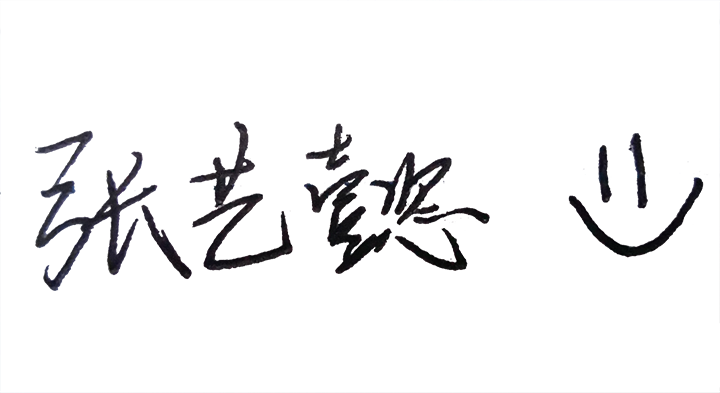 张艺懿